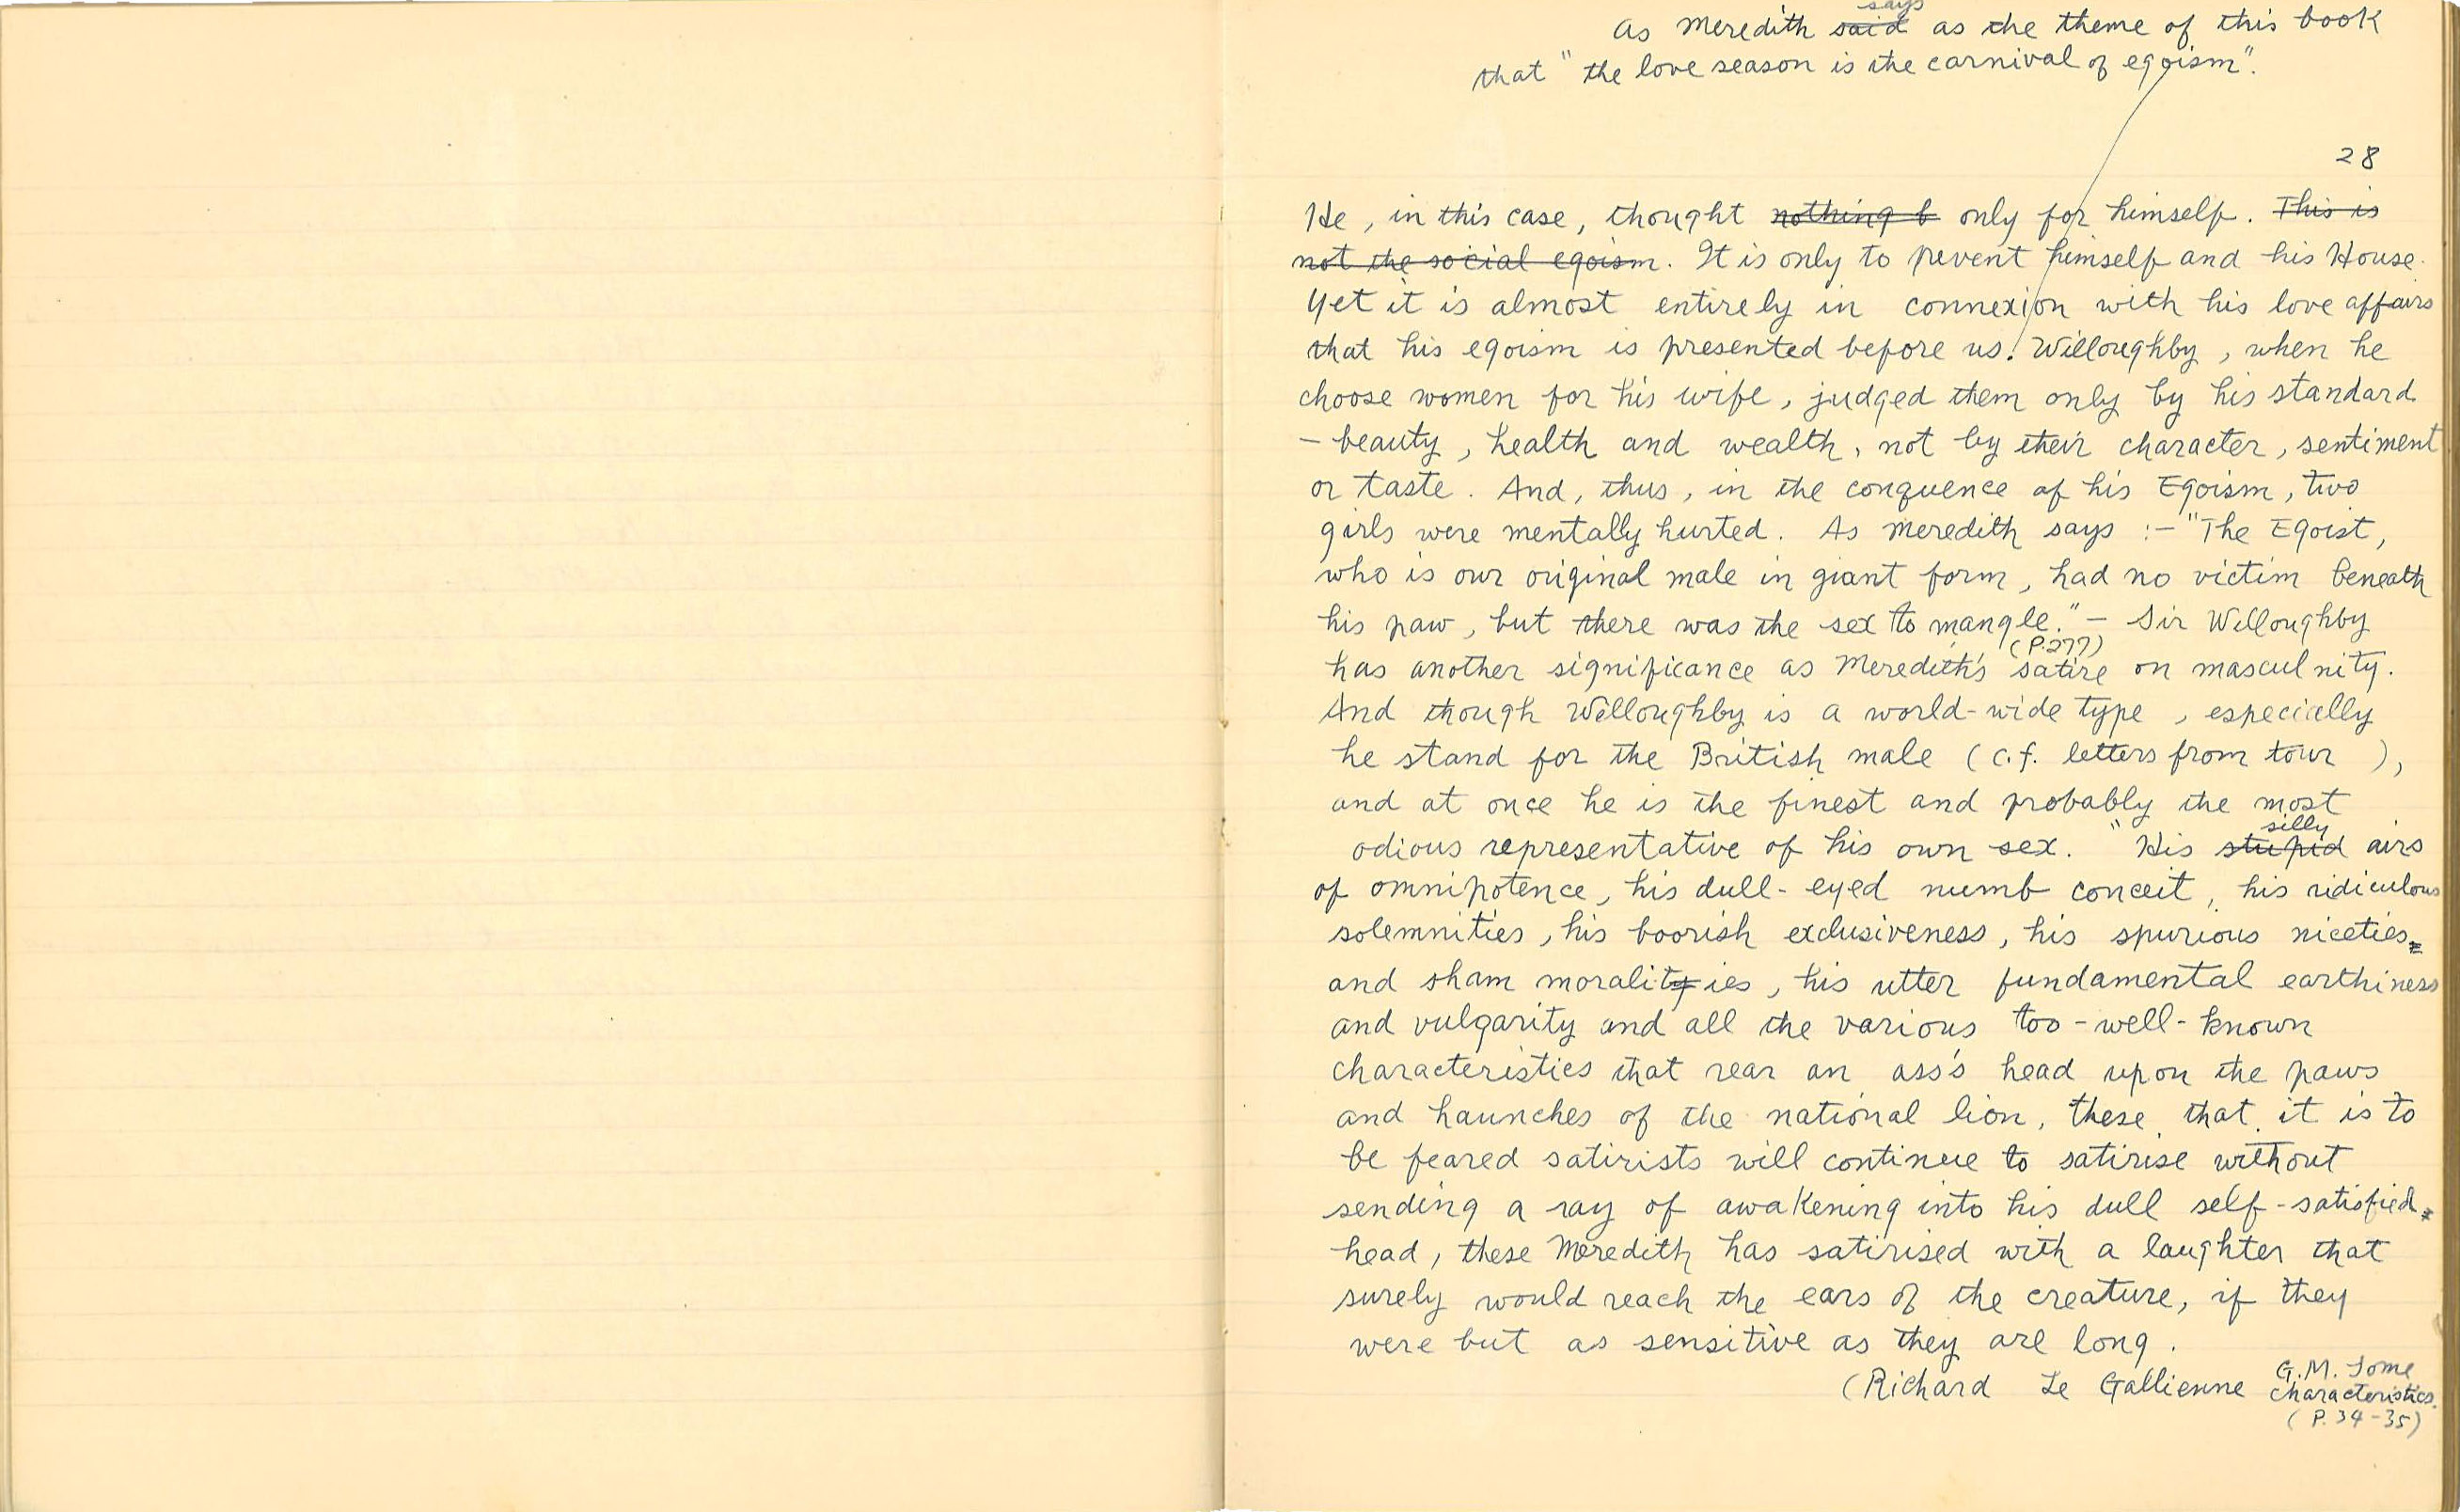 says
as Meredith said as the theme of this book
that "the love season is the carnival of egoism".
28
He, in this case, thought nothing b only for himself. This is
not the social egoism. It is only to pevent himself and his House.
Yet it is almost entirely in connexion with his love affairs
that his egoism is presented before us. Willoughby, when he
choose women for his wife, judged them only by his standard
- beauty, health and wealth, not by their character, sentiment
or taste. And, thus, in the conquence of his Egoism, two
girls were mentally hurted. As Meredith says :- "The Egoist,
who is our original male in giant form, had no victim beneath
his paw, but there was the sex to mangle." - Sir Willoughby
(P.277)
has another significance as Meredith's satire on masculnity.
And though Willoughby is a world-wide type, especially
he stand for the British male (c.f. letters from tour ),
and at once he is the finest and probably the most
silly
odious representative of his own sex. "His stupid airs
of omnipotence, his dull-eyed numb conceit, his ridiculous
solemnities, his boorish exclusiveness, his spurious niceties
and sham moralities, his utter fundamental earthiness
and vulgarity and all the various too-well-known
characteristics that rear an ass's head upon the paws
and haunches of the national lion, these that it is to
be feared satirists will continue to satirise without
sending a ray of awakening into his dull self-satisfied
head, these Meredith has satirised with a laughter that
surely would reach the ears of the creature, if they
were but as sensitive as they are long.
(Richard Le Gallienne G.M. Some
characteristics.
(P. 34-35)